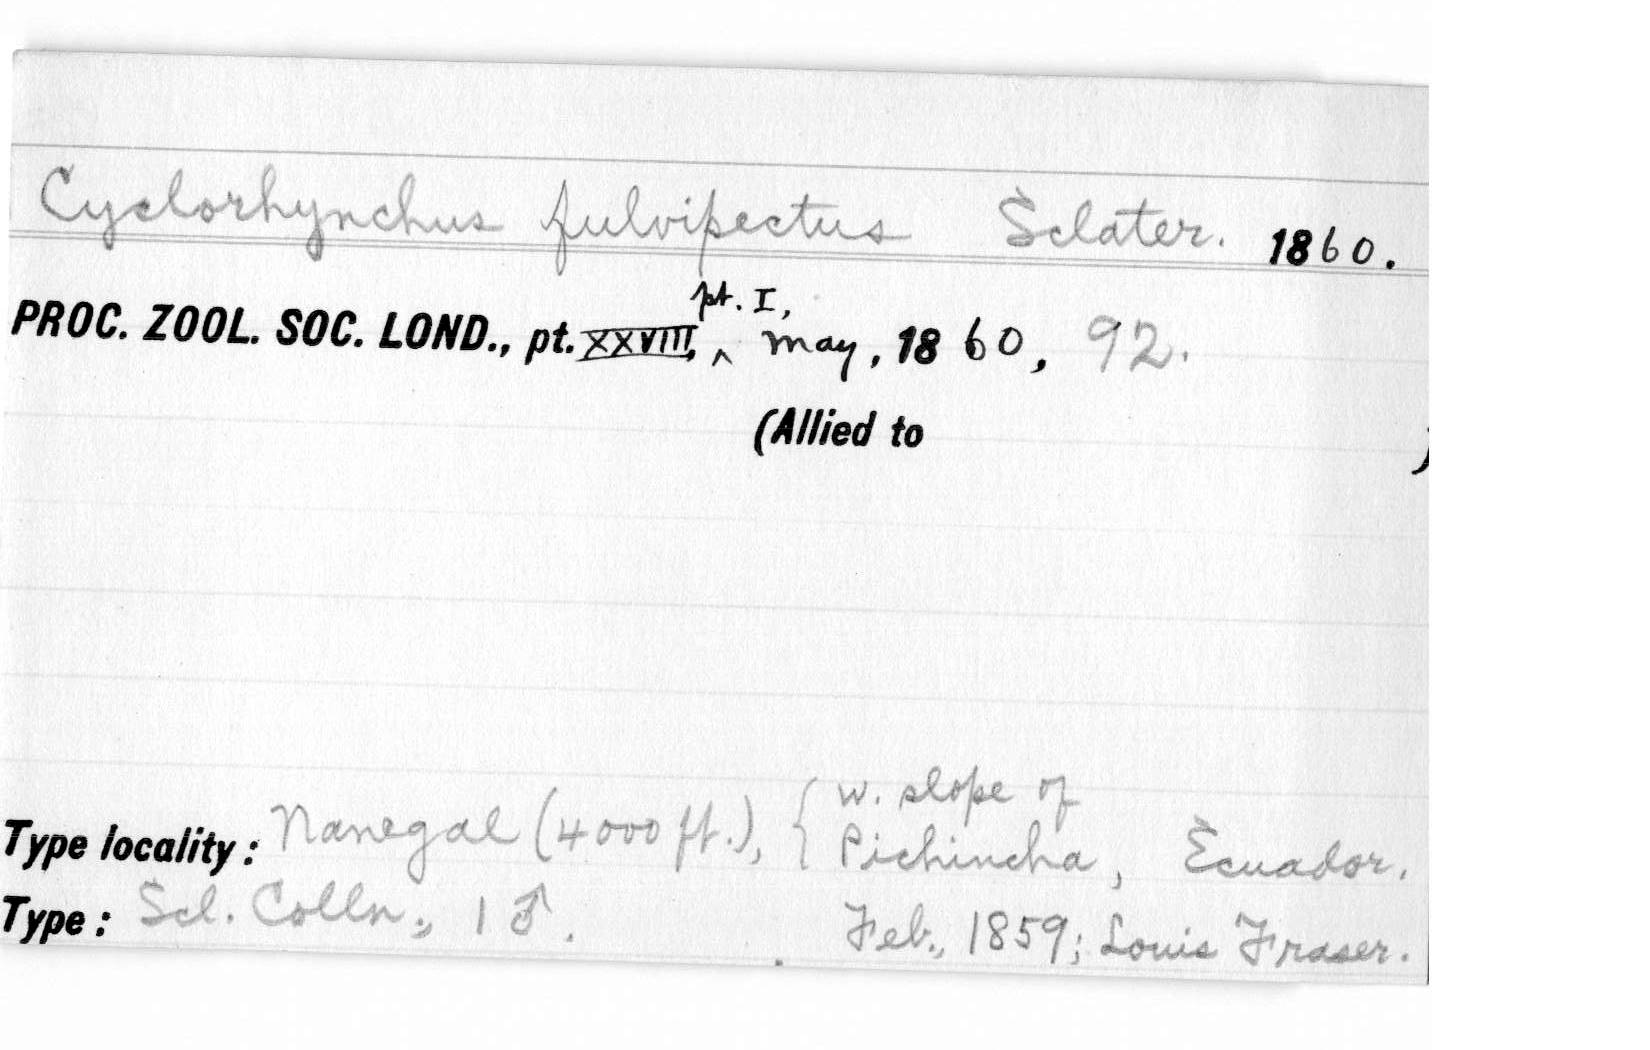 Cyclorhynchus fulvipectus Sclater. 1860.
PROC. ZOOL. SOC. LOND., pt. XXVIII, ^ pt. I, May, 1860, 92.
(Allied to )
Type locality: Nanegal (4000 ft.), { W. slope of
Pichincha, Ecuador.
Type: Scl. Colln.; 1 ♂. Feb., 1859; Louis Fraser.